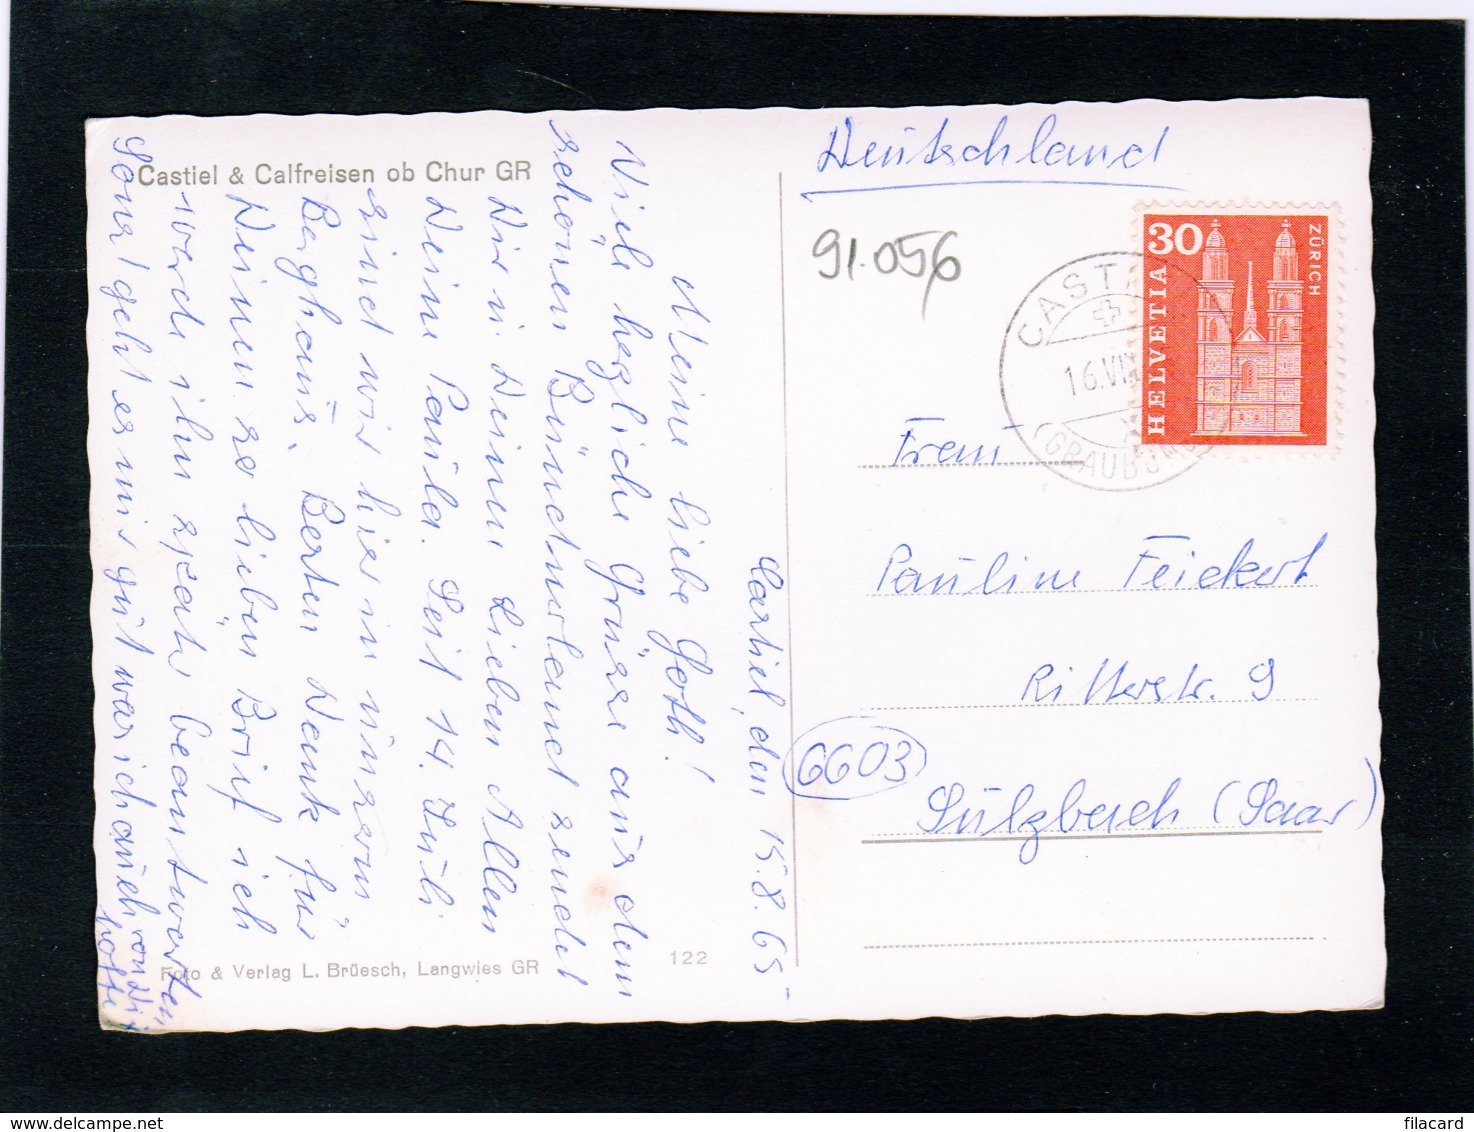 Castiel & Calfreisen ob Chur GR
Castiel, den 15.8.65
Meine liebe Goth!
Viele herzliche Grüsse aus dem
schönen Bündnerland sendet
Dir u. Deinen Lieben Allen
Deine Paula. Seit 14. Juli
sind wir hier in unserm
Berghaus. Besten Dank für
Deinen so lieben Brief ich
werde ihn später beantworten,
Sonst geht es mir gut was ich auch von Dir
hoffe
Foto & Verlag L. Brüesch, Langwies GR
122
Deutschland
91.056
30
HELVETIA
ZÜRICH
CASTI
16.VII
(GRAUBÜN
Frau
Pauline Feickert
Ritterstr. 9
6603
Sulzbach (Saar)
filacard
https://www.delcampe.net